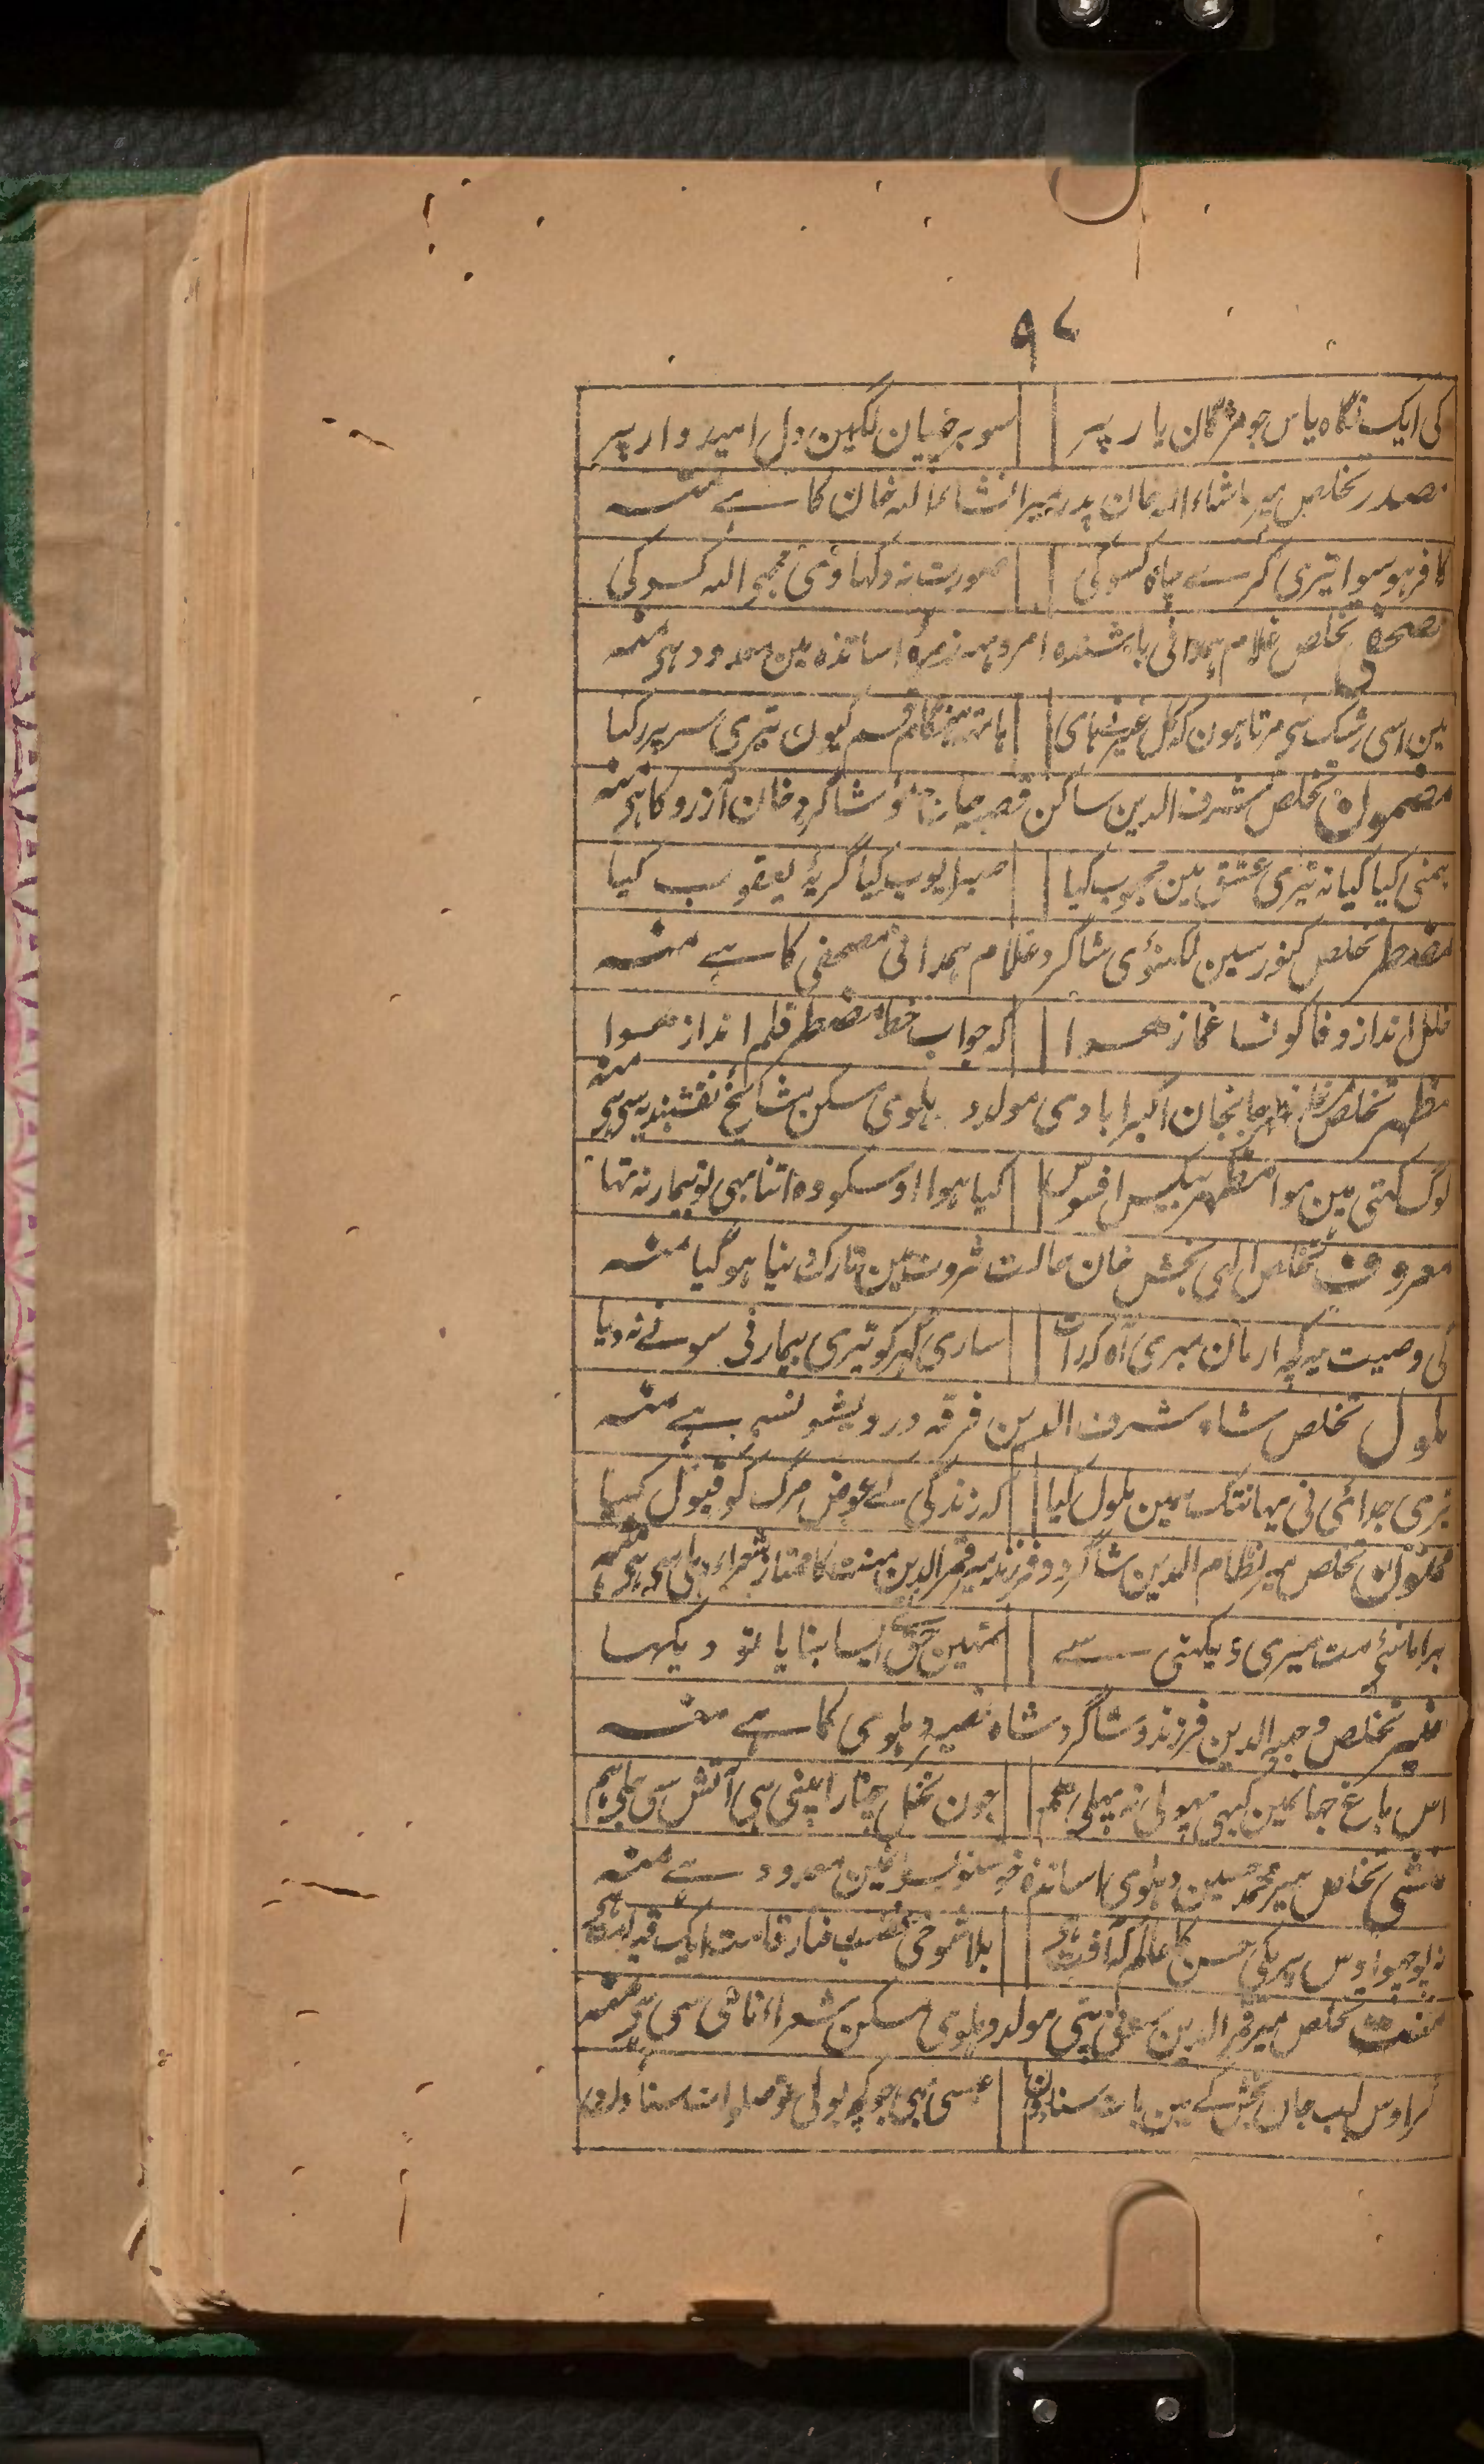 ۹۷
کی ایک نگاہ یاس جو مژگان یار پر سو برچھیان لگین دل امیدوار پر
مصدر تخلص میر ماشاء اللہ خان پدر میر انشاء اللہ خان کا ہے منہ
کافر ہو سوا تیری کرے چاہ کسو کی صورت نہ دکہاوئی مجہی اللہ کسو کی
مصحفی تخلص غلام ہمدانی باشندہ امروہہ زمرۂ اساتذہ مین معدود ہی منہ
مین اسی رشک سی مرتا ہون کہ کل غیر نی ہای ہاتہ ہنگام قسم کیون تیری سر پر رکہا
مضمون تخلص شرف الدین ساکن قصبہ جاجمؤ شاگرد خان آرزو کا ہی منہ
ہمنی کیا کیا نہ تیری عشق مین محبوب کیا صبر ایوب کیا گریۂ یعقوب کیا
مضطر تخلص کنور سین لکہنؤی شاگرد غلام ہمدانی مصحفی کا ہے منہ
خلل انداز وفا کونسا غماز ہوا کہ جواب خط مضطر قلم انداز ہوا
مظہر تخلص جانجان اکبرابادی مولد دہلوی مسکن مشائخ نقشبندیہ سی ہی منہ
لوگ کہتی ہین موا مظہر بیکس افسوس کیا ہوا اوسکو وہ اتنا بہی تو بیمار نہ تہا
معروف تخلص الہی بخش خان حالت ثروت مین تارک دنیا ہو گیا منہ
کی وصیت یہ کہ ارمان میری آہ کہ رات ساری گہر کو تیری بیمار نی سونے نہ دیا
ملول تخلص شاہ شرف الدین فرقہ درویشونسی ہے منہ
تری جدائی نی یہانتک ہمین ملول کیا کہ زندگی کے عوض مرگ کو قبول کیا
ممنون تخلص میر نظام الدین شاگرد و فرزند میر قمر الدین منت کا ممتاز شعراء دہلی سی ہی منہ
برا مانئی مت میری دیکہنی سے تمہین حق نے ایسا بنایا تو دیکہا
منیر تخلص وجیہ الدین فرزند و شاگرد شاہ نصیر دہلوی کا ہے منہ
اس باغ جہانمین کبہی پہولی نہ پہلی ہم جون نخل چنار اپنی ہی آتش سی جلی ہم
منشی تخلص میر محمد حسین دہلوی اساتذہ خوشنویسو نمین معدود ہے منہ
نہ پوچہو اوس پری کی حسن کا عالم کہ آفت ہی بلا شوخی غضب رفتار قامت ایک قیامت ہی
منت تخلص میر قمر الدین سونی پتی مولد دہلوی مسکن شعراء نامی سی ہی منہ
گر اوس لب جان بخش کے مین بات سناؤن عیسی بہی جو کچہ بولی تو صلوات سناؤن